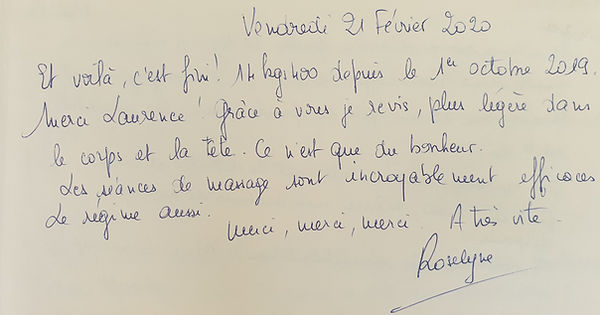 Vendredi 21 Février 2020
Et voilà, c'est fini! 14 kgs400 depuis le 1er octobre 2019.
Merci Laurence! Grâce à vous je revis, plus légère dans
le corps et la tête. Ce n'est que du bonheur.
Les séances de massage sont incroyablement efficaces
Le régime aussi. Merci, merci, merci. A très vite.
Roselyne